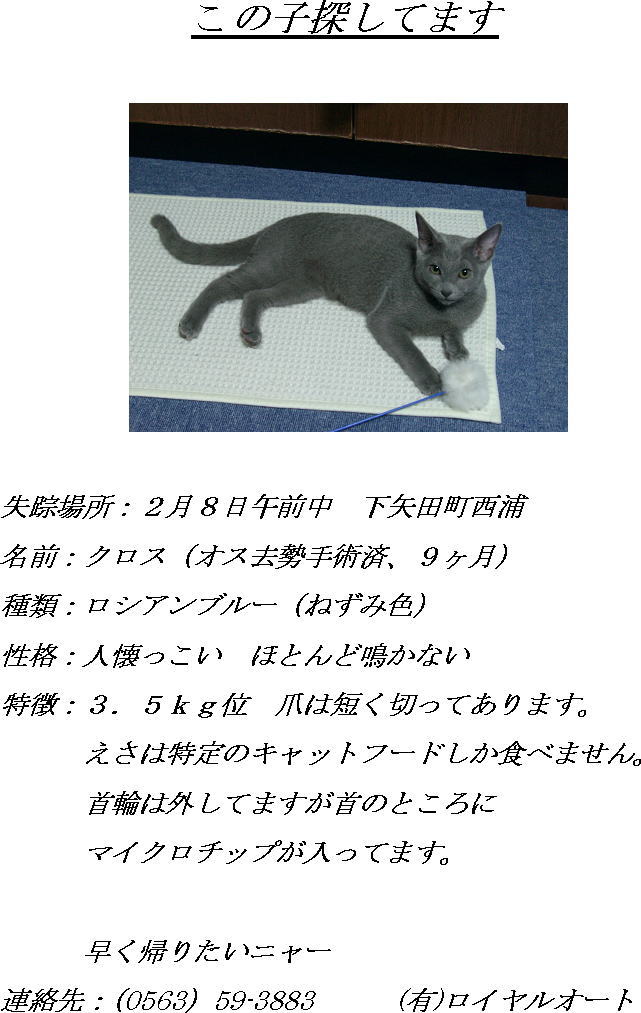 この子探してます
失踪場所：２月８日午前中　下矢田町西浦
名前：クロス（オス去勢手術済、９ヶ月）
種類：ロシアンブルー（ねずみ色）
性格：人懐っこい　ほとんど鳴かない
特徴：３．５ｋｇ位　爪は短く切ってあります。
えさは特定のキャットフードしか食べません。
首輪は外してますが首のところに
マイクロチップが入ってます。
早く帰りたいニャー
連絡先：(0563）59-3883　　　(有)ロイヤルオート